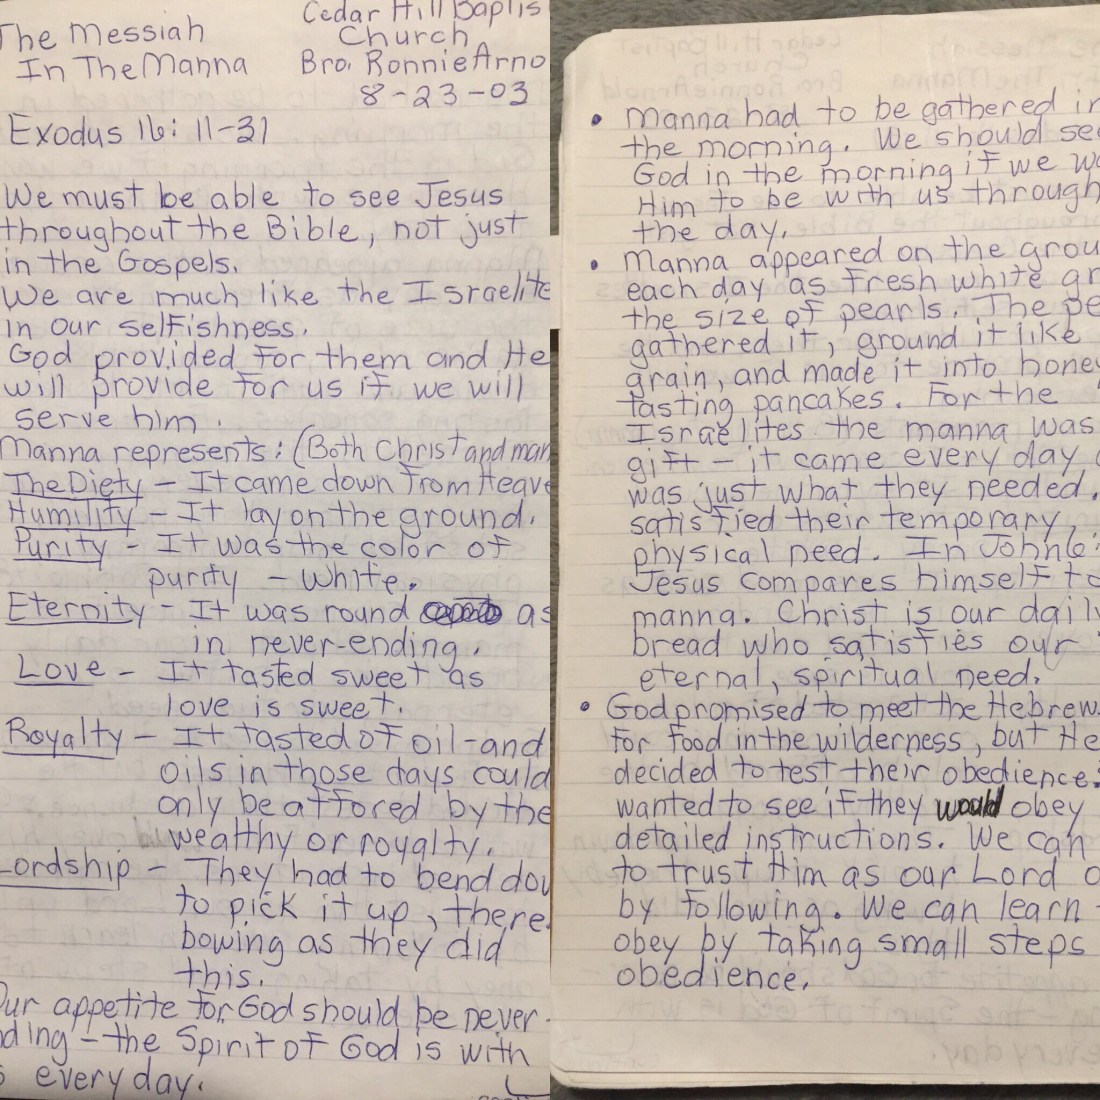 The Messiah
In The Manna
Cedar Hill Baptis
Church
Bro. Ronnie Arno
8-23-03
Exodus 16:11-31
We must be able to see Jesus
throughout the Bible, not just
in the Gospels.
We are much like the Israelite
in our selfishness.
God provided for them and He
will provide for us if we will
serve him.
Manna represents: (Both Christ and man
The Diety - It came down from Heave
Humility - It lay on the ground.
Purity - It was the color of
purity - white.
Eternity - It was round as
in never-ending.
Love - It tasted sweet as
love is sweet.
Royalty - It tasted of oil - and
oils in those days could
only be affored by the
wealthy or royalty.
Lordship - They had to bend dow
to pick it up, there
bowing as they did
this.
Our appetite for God should be never-
ding - the Spirit of God is with
s everyday.
• Manna had to be gathered in
the morning. We should see
God in the morning if we wa
Him to be with us through
the day.
• Manna appeared on the grou
each day as fresh white gr
the size of pearls. The pe
gathered it, ground it like
grain, and made it into honey
tasting pancakes. For the
Israelites the manna was
gift - it came every day a
was just what they needed.
satisfied their temporary,
physical need. In John 6:
Jesus compares himself to
manna. Christ is our daily
bread who satisfies our
eternal, spiritual need.
• God promised to meet the Hebrews
for food in the wilderness, but He
decided to test their obedience.
wanted to see if they would obey
detailed instructions. We can
to trust Him as our Lord o
by following. We can learn t
obey by taking small steps
obedience.